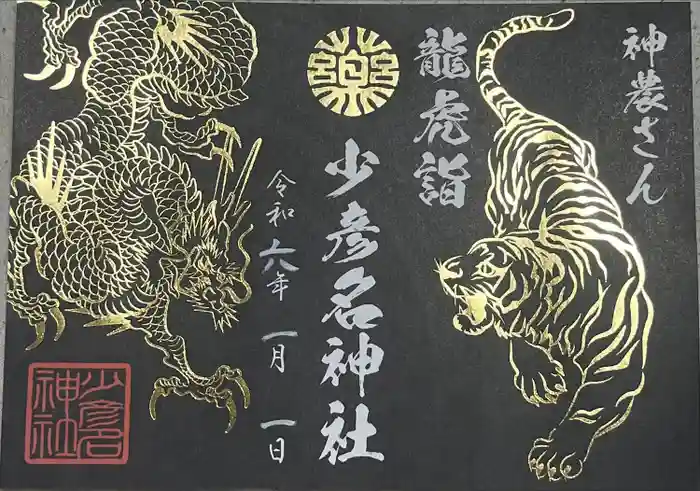 神農さん
龍虎詣
薬
少彦名神社
令和六年 一月 一日
少彦名
神社